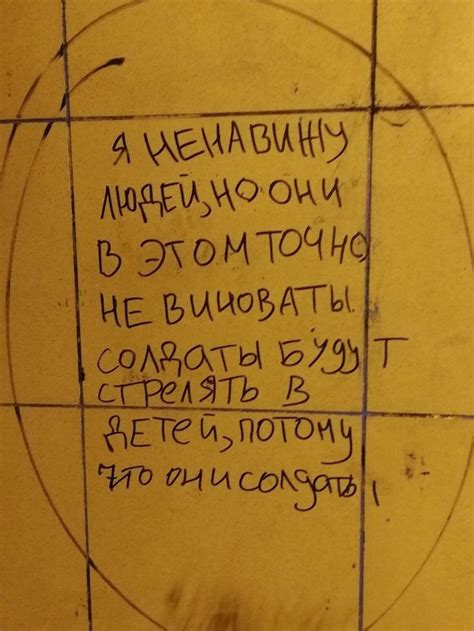 Я НЕНАВИЖУ
ЛЮДЕЙ, НО ОНИ
В ЭТОМ ТОЧНО
НЕ ВИНОВАТЫ.
СОЛДАТЫ БУДУТ
СТРЕЛЯТЬ В
ДЕТЕЙ, ПОТОМУ
ЧТО ОНИ СОЛДАТЫ,